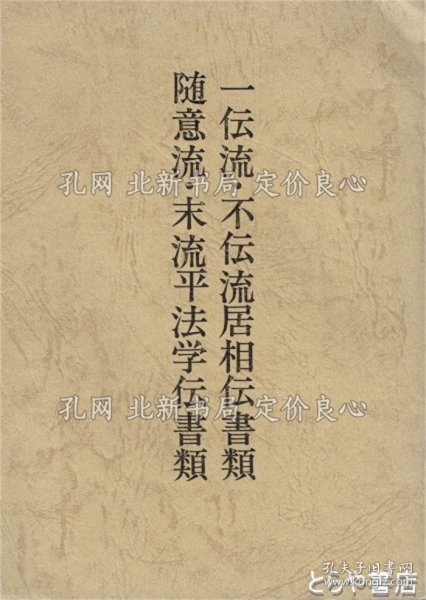 一伝流·不伝流居相伝書類
随意流·末流平法学伝書類
孔网 北新书局 定价良心
孔网 北新书局 定价良心
孔夫子旧书网
とらや書店